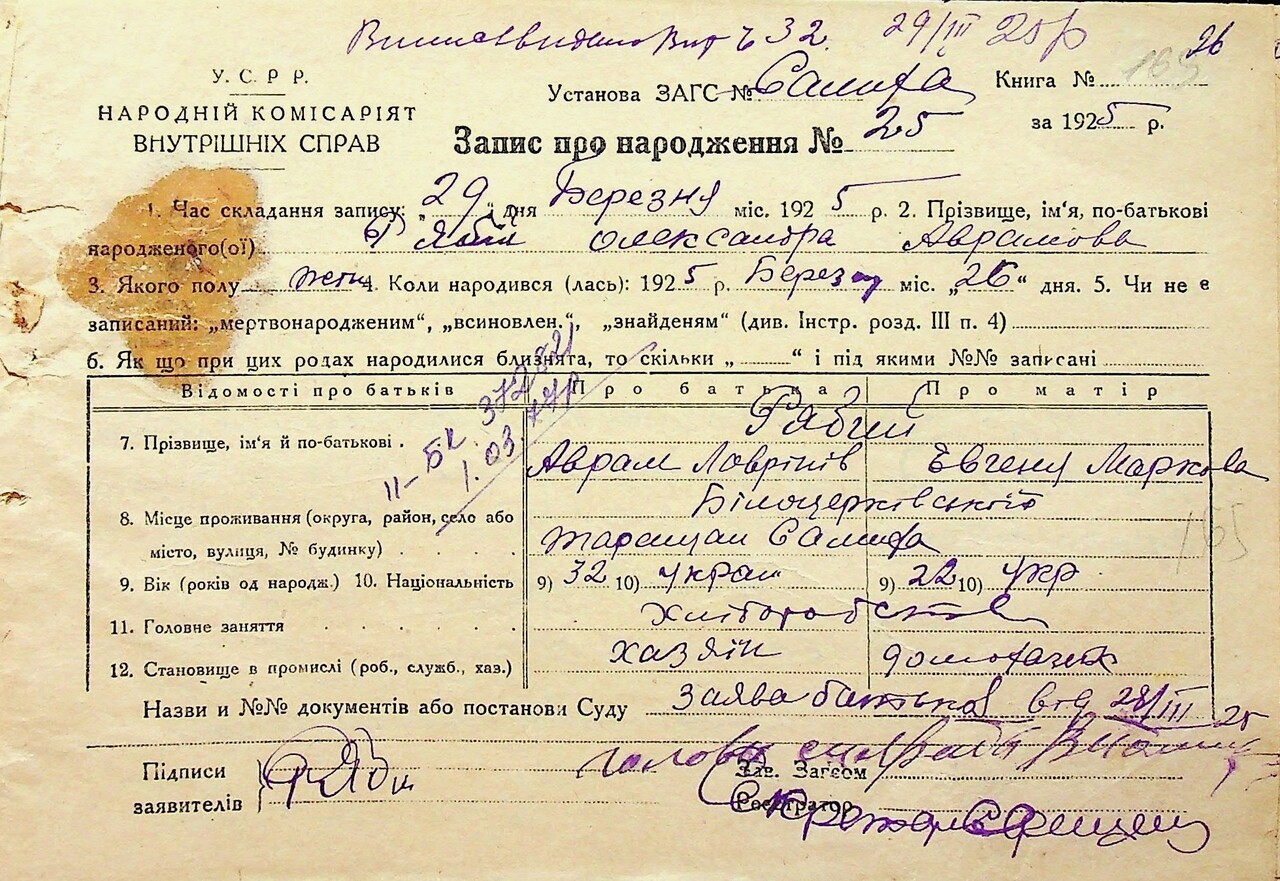 32. 29/III 25р
26
У. С. Р. Р.
НАРОДНІЙ КОМІСАРІЯТ
ВНУТРІШНІХ СПРАВ
Установа ЗАГС №
Книга № 165
за 1925 р.
Запис про народження № 25
1. Час складання запису: „29“ дня Березня міс. 1925 р. 2. Прізвище, ім'я, по-батькові
народженого(ої) Рябий Олександра Аврамова
3. Якого полу жін 4. Коли народився (лась): 1925 р. Березня міс. „26“ дня. 5. Чи не є
записаний: „мертвонародженим“, „всиновлен.“, „знайденям“ (див. Інстр. розд. III п. 4)
6. Як що при цих родах народилися близнята, то скільки „ “ і під якими №№ записані
Відомості про батьків Про батька Про матір
II-БК 372821
1.03.77р
Рябий
7. Прізвище, ім'я й по-батькові . Аврам Лавріків Евгения Маркова
Білоцерківської
8. Місце проживання (округа, район, село або
місто, вулиця, № будинку) . . . .
165
9. Вік (років од народж.) 10. Національність 9) 32 10) украи 9) 22 10) Укр
11. Головне заняття . . . . . . Хліборобство
12. Становище в промислі (роб., служб., хаз.) хазяін домохазяйк
Назви и №№ документів або постанови Суду заява батька від 28/III 25
Підписи
заявителів Ряби
голова
Зав. Загсом
Реєстратор